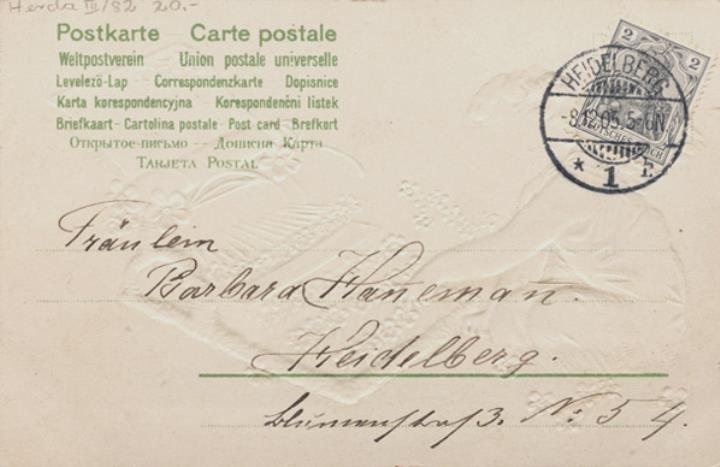 Herda III/82 20.-
Postkarte Carte postale
Weltpostverein — Union postale universelle
Levelező-Lap Correspondenzkarte Dopisnice
Karta korespondencyjna Korespondenčni listek
Briefkaart- Cartolina postale Post card Brefkort
Открытое письмо -- Дописни Карта
TARJETA POSTAL
2 2
DEUTSCHES REICH
HEIDELBERG
-8.12.05.5-6N.
* 1 h.
Fräulein
Barbara Hanemann.
Heidelberg.
Blumenstraß. No: 54.